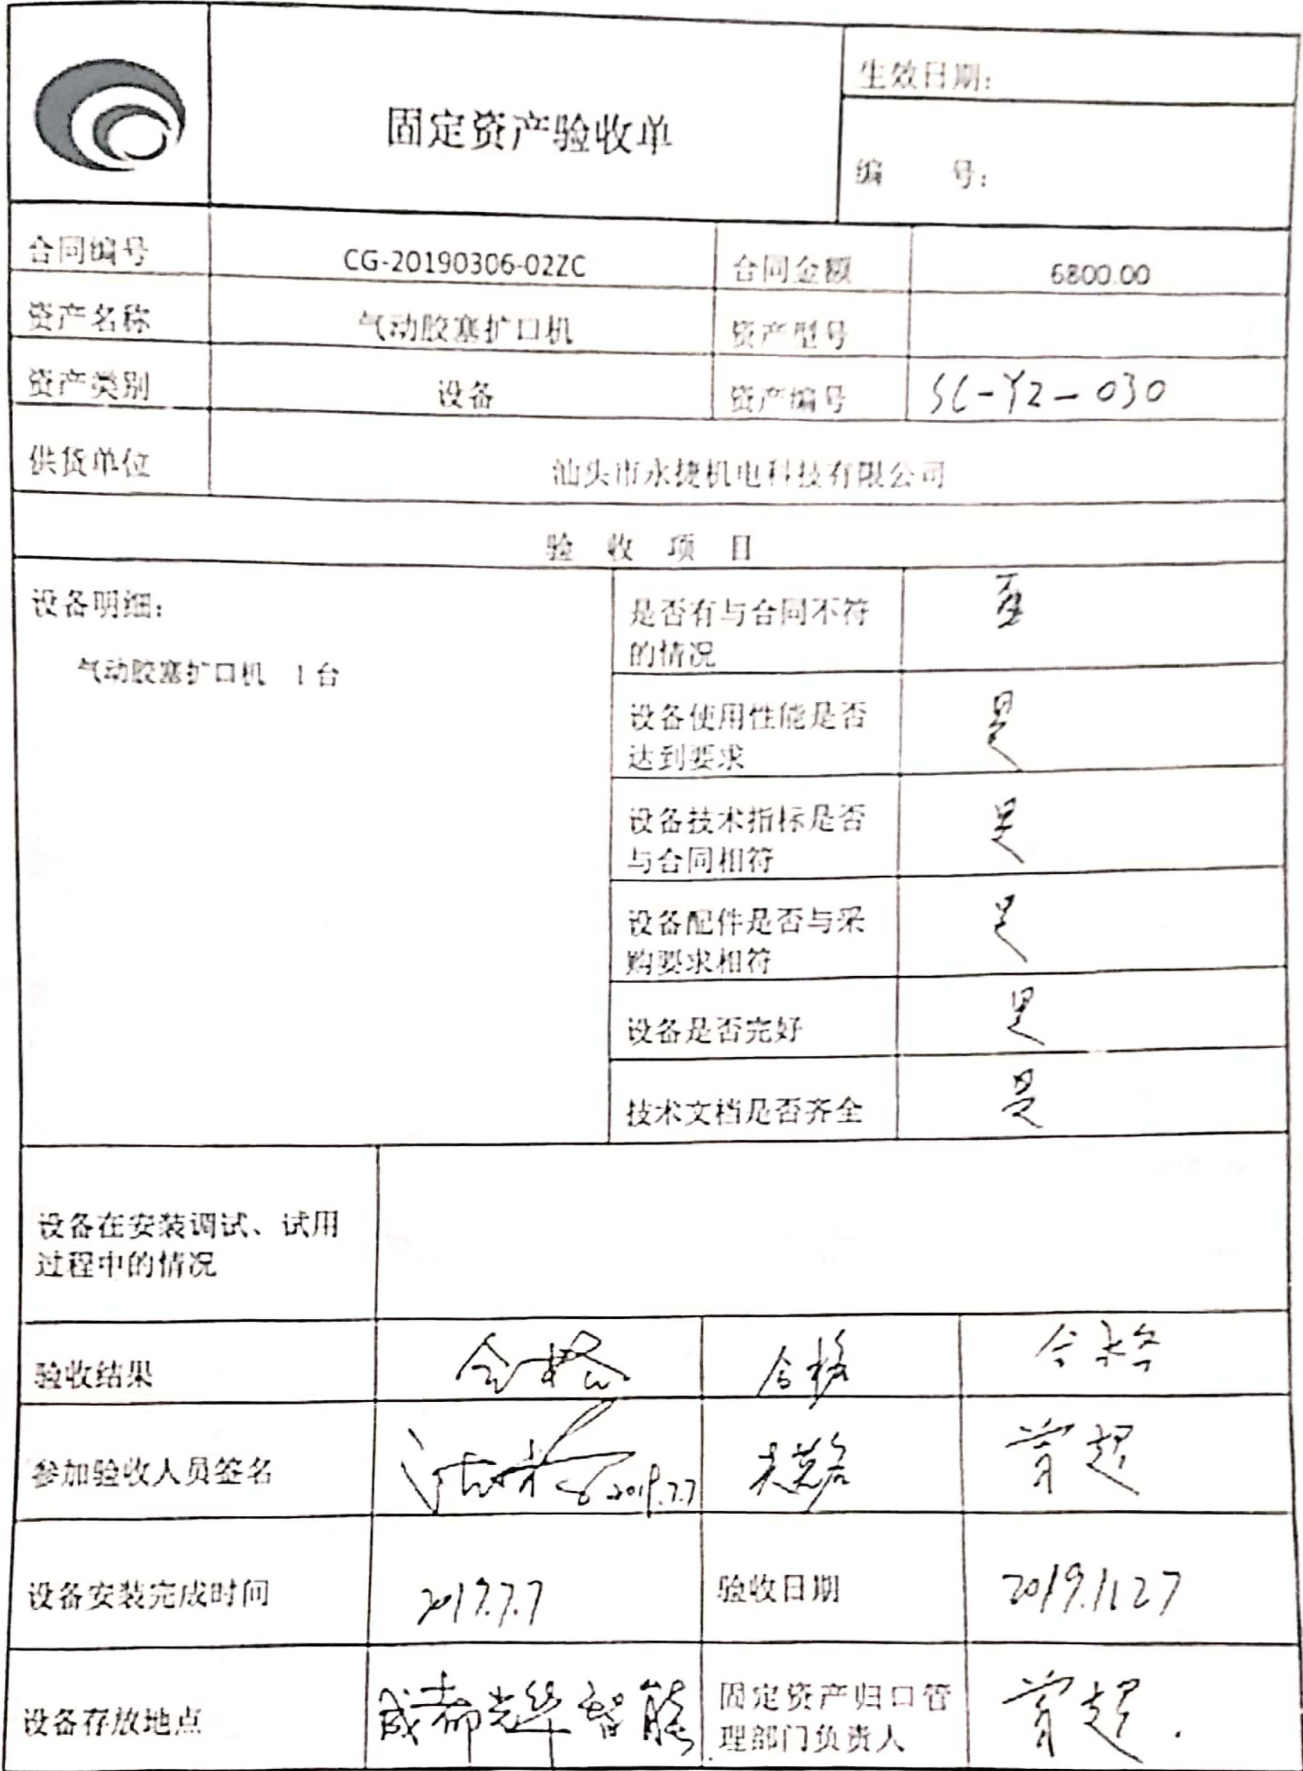 固定资产验收单
生效日期:
编 号:
合同编号 CG-20190306-02ZC 合同金额 6800.00
资产名称 气动胶塞扩口机 资产型号
资产类别 设备 资产编号 SC-YZ-030
供货单位 汕头市永捷机电科技有限公司
验 收 项 目
设备明细:
气动胶塞扩口机 1台
是否有与合同不符
的情况
设备使用性能是否
达到要求
是
设备技术指标是否
与合同相符
是
设备配件是否与采
购要求相符
是
设备是否完好 是
技术文档是否齐全 是
设备在安装调试、试用
过程中的情况
验收结果 合格 合格 合格
参加验收人员签名 2019.7.7
设备安装完成时间 2019.7.7 验收日期 2019.11.27
设备存放地点 成都光华智能
固定资产归口管
理部门负责人